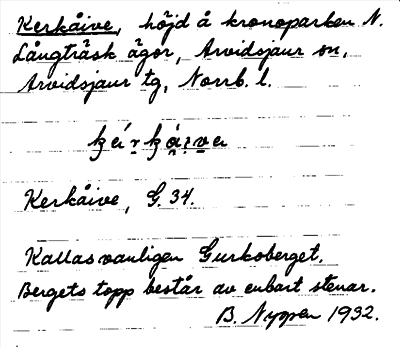 Kerkåive, höjd å kronoparken N.
Långträsk ägor, Arvidsjaur sn,
Arvidsjaur tg, Norrb. l.
Kerkåive, G. 34.
Kallas vanligen Gurkoberget.
Bergets topp består av enbart stenar.
B. Nyppen 1932.